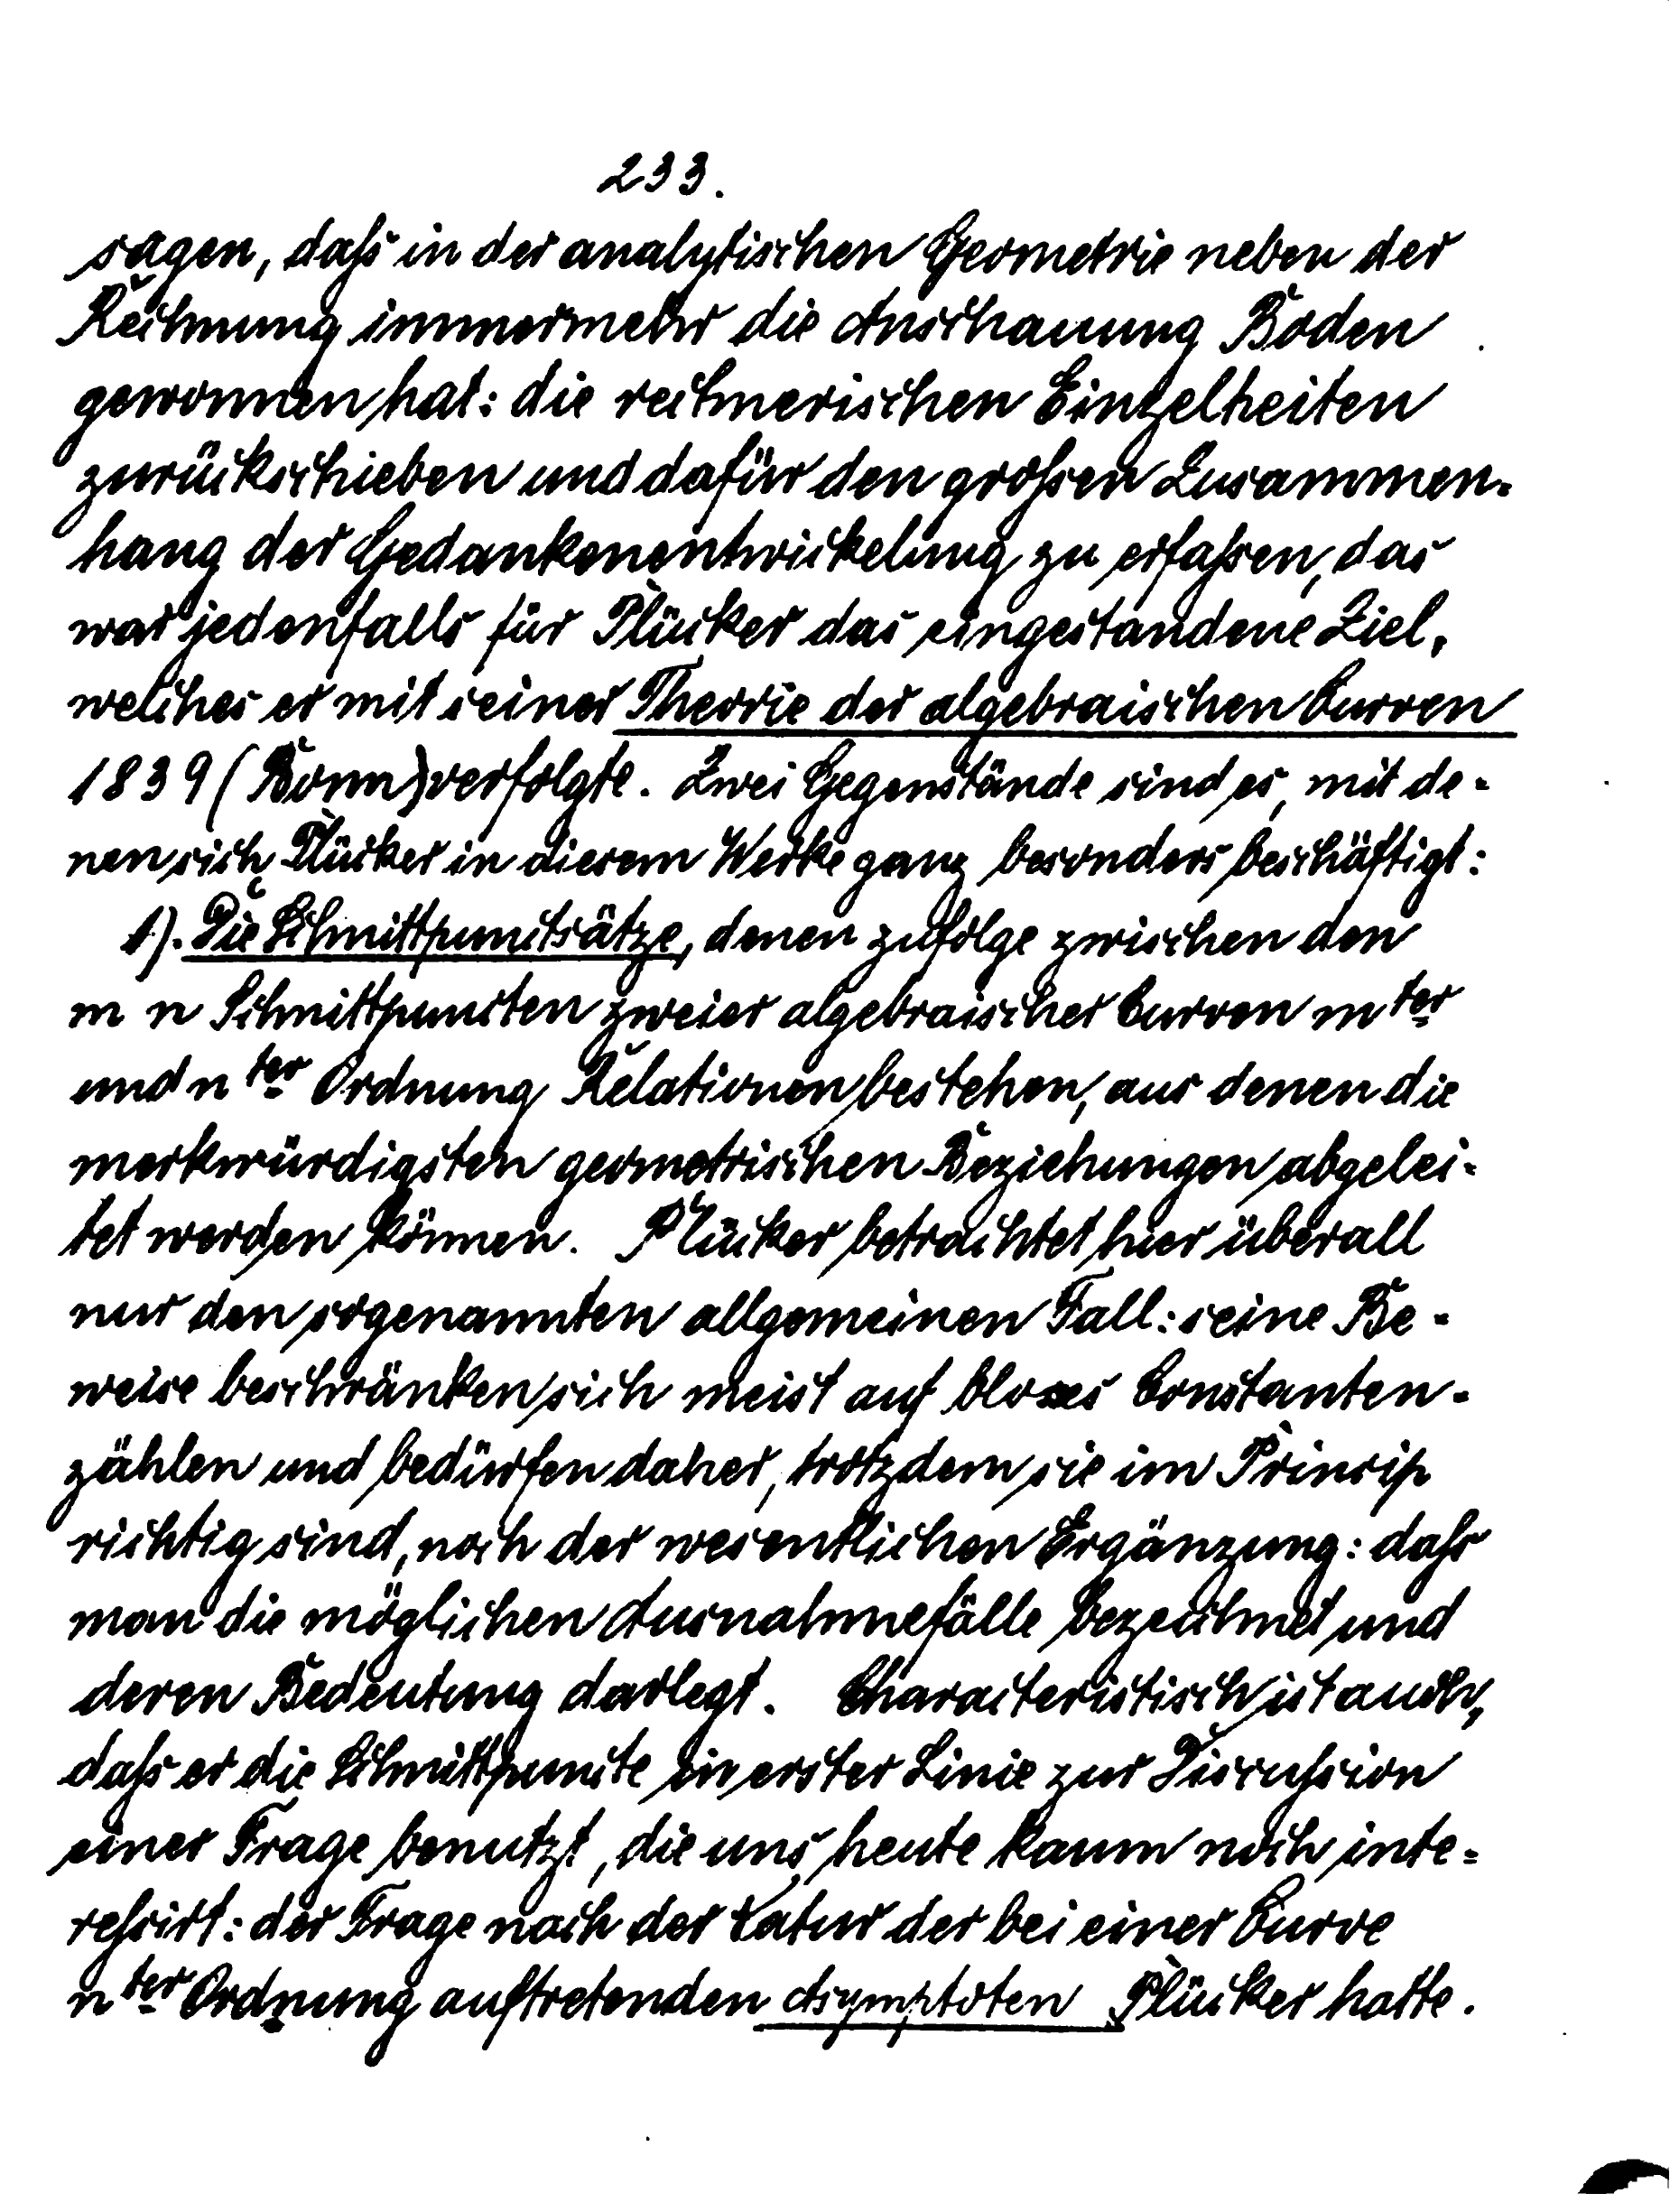 233.
sagen, daſs in der analytischen Geometrie neben der
Rechnung immermehr die Anschauung Boden
gewonnen hat: die rechnerischen Einzelheiten
zurückschieben und dafür den groſsen Zusammen-
hang der Gedankenentwickelung zu erfaſsen, das
war jedenfalls für Plücker das eingestandene Ziel,
welches er mit seiner Theorie der algebraischen Curven
1839 (Bonn) verfolgte. Zwei Gegenstände sind es, mit de-
nen sich Plücker in diesem Werke ganz besonders beschäftigt:
1). Die Schnittpunctsätze, denen zufolge zwischen den
m n Schnittpuncten zweier algebraischer Curven m ter
und n ter Ordnung Relationen bestehen, aus denen die
merkwürdigsten geometrischen Beziehungen abgelei-
tet werden können. Plücker betrachtet hier überall
nur den sogenannten allgemeinen Fall: seine Be-
weise beschränken sich meist auf bloses Constanten-
zählen und bedürfen daher, trotzdem sie im Princip
richtig sind, noch der wesentlichen Ergänzung: daſs
man die möglichen Ausnahmefälle bezeichnet und
deren Bedeutung darlegt. Characteristisch ist auch,
daſs er die Schnittpuncte in erster Linie zur Discuſsion
einer Frage benutzt, die uns heute kaum noch inte-
reſsirt: der Frage nach der Natur der bei einer Curve
n ter Ordnung auftretenden Asymptoten Plücker hatte.